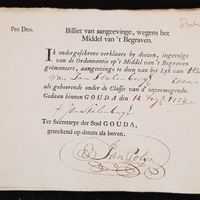 Pro Deo.
Billiet van aangeevinge, wegens het
Middel van 't Begraven.
Ik ondergeschreeve verklaare by deezen, ingevolge
van de Ordonnantie op 't Middel van 't Begraven
geëmaneert, aangeevinge te doen van het Lyk van
van Jan Stalenberg
als gehoorende onder de Classis van d' onvermogende.
Gedaan binnen GOUDA den 1772
Jan Stalenberg
Ter Secretarye der Stad GOUDA,
geteekend op datum als boven.